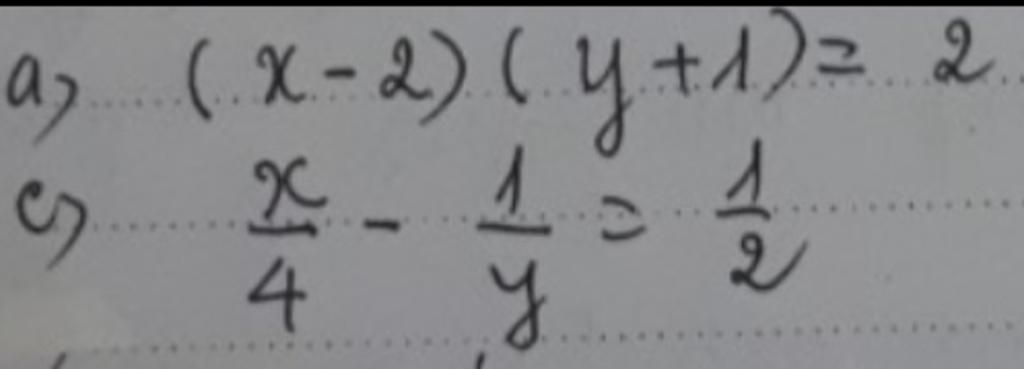 a) (x - 2)(y + 1) = 2
c) x/4 - 1/y = 1/2